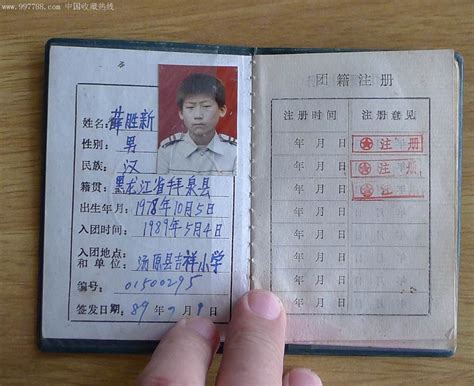 www.997788.com 中国收藏热线
姓名: 薛胜新
性别: 男
民族: 汉
籍贯: 黑龙江省拜泉县
出生年月: 1978年10月5日
入团时间: 1989年5月4日
入团地点
和单位: 汤原县吉祥小学
编号: 01500295
签发日期: 89年 月 日
团籍注册
注册时间 注册意见
年 月 日 注册
年 月 日 注册
年 月 日 注册
年 月 日
年 月 日
年 月 日
年 月 日